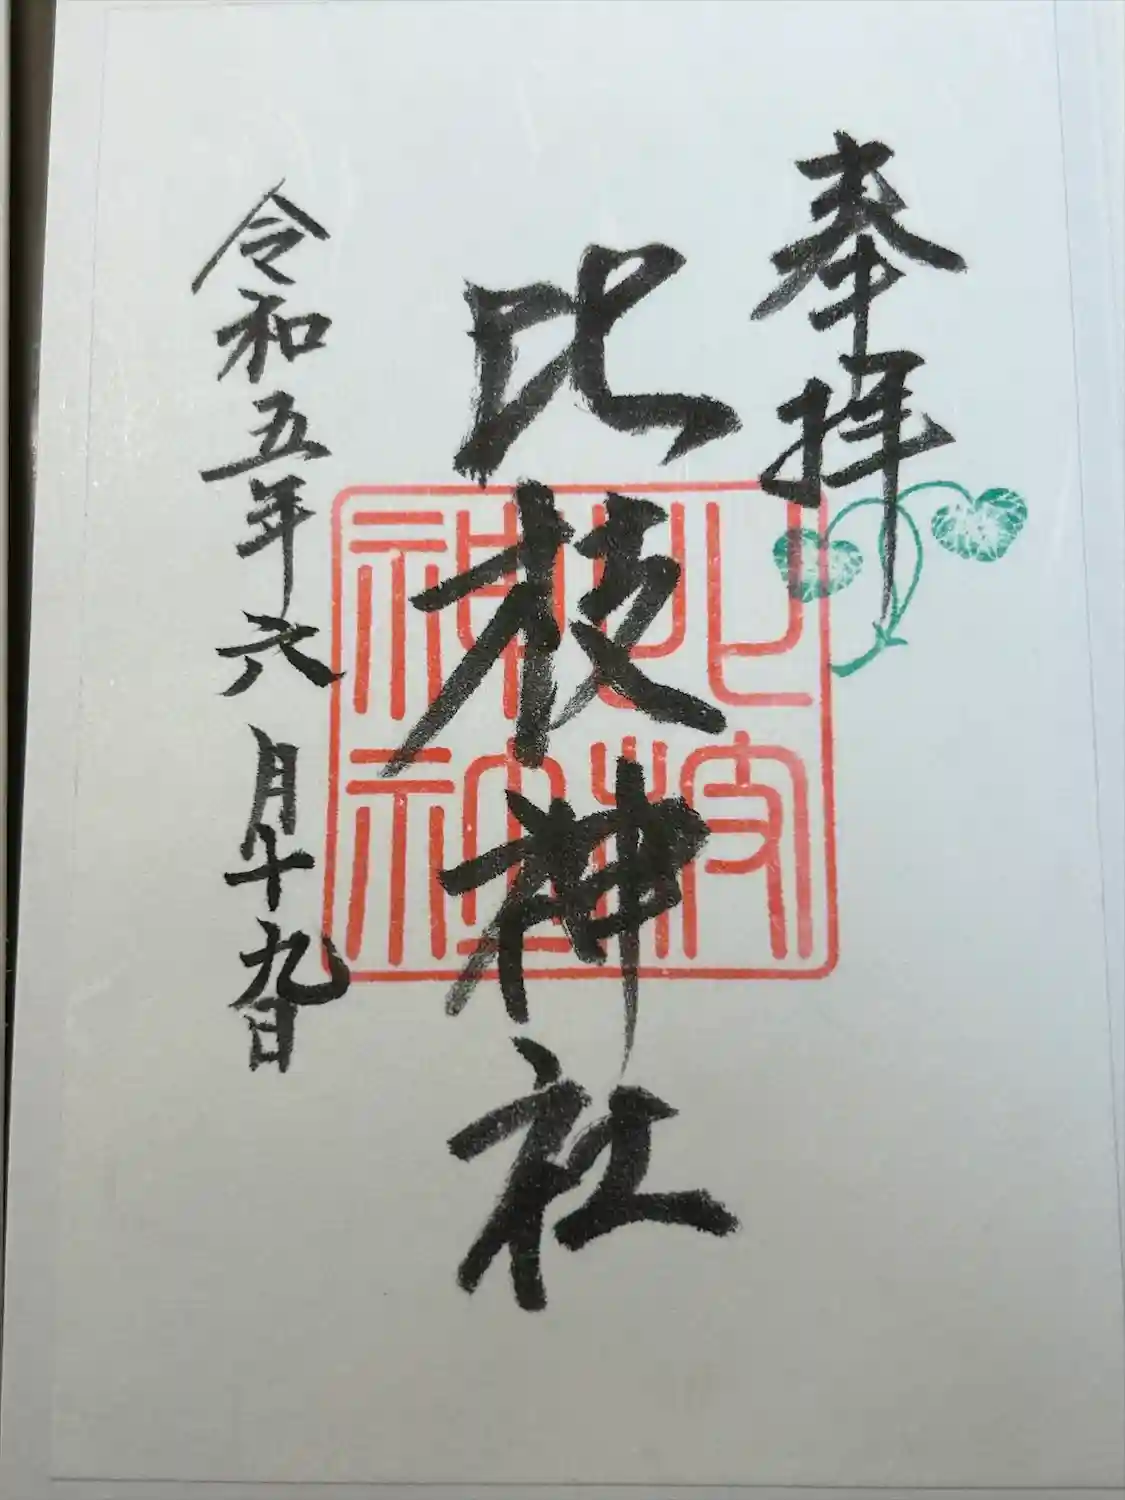 奉拝
比枝神社
比枝神社
令和五年六月十九日